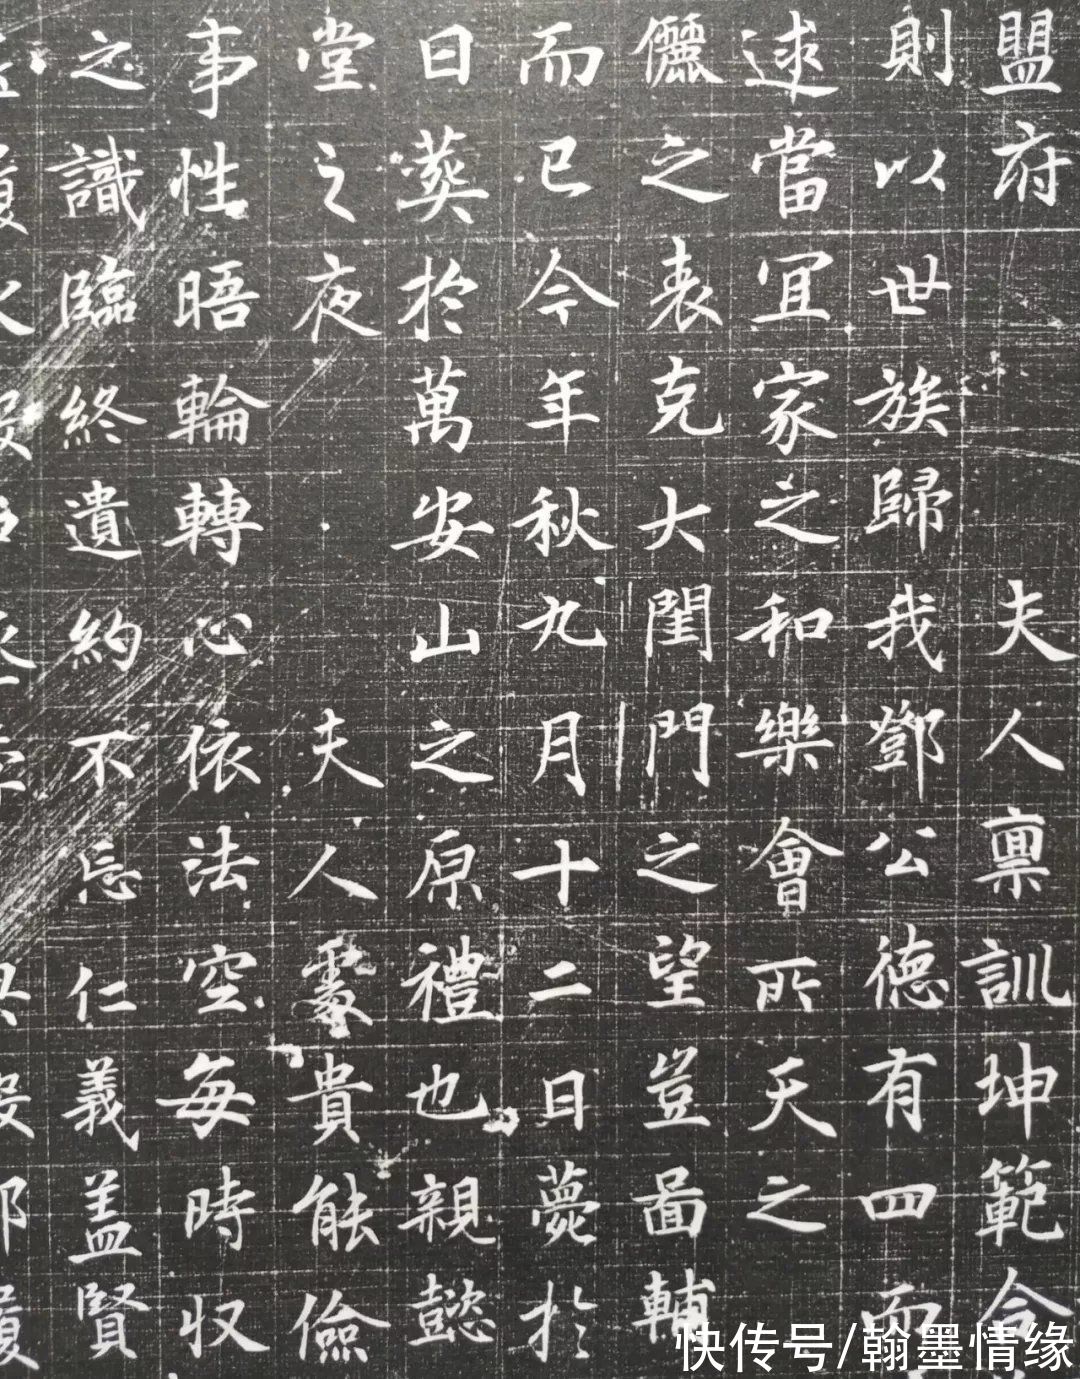 盟府夫人禀訓坤範含
則以世族歸我鄧公德有四而
逑當宜家之和樂會所天之
儷之表克大閨門之望豈啚輔
而已今年秋九月十二日薨於
日葬於萬安山之原禮也親懿
堂之夜夫人處貴能儉
事性晤輪轉心依法空每時收
之識臨終遺約不忘仁義盖賢
快传号/翰墨情缘